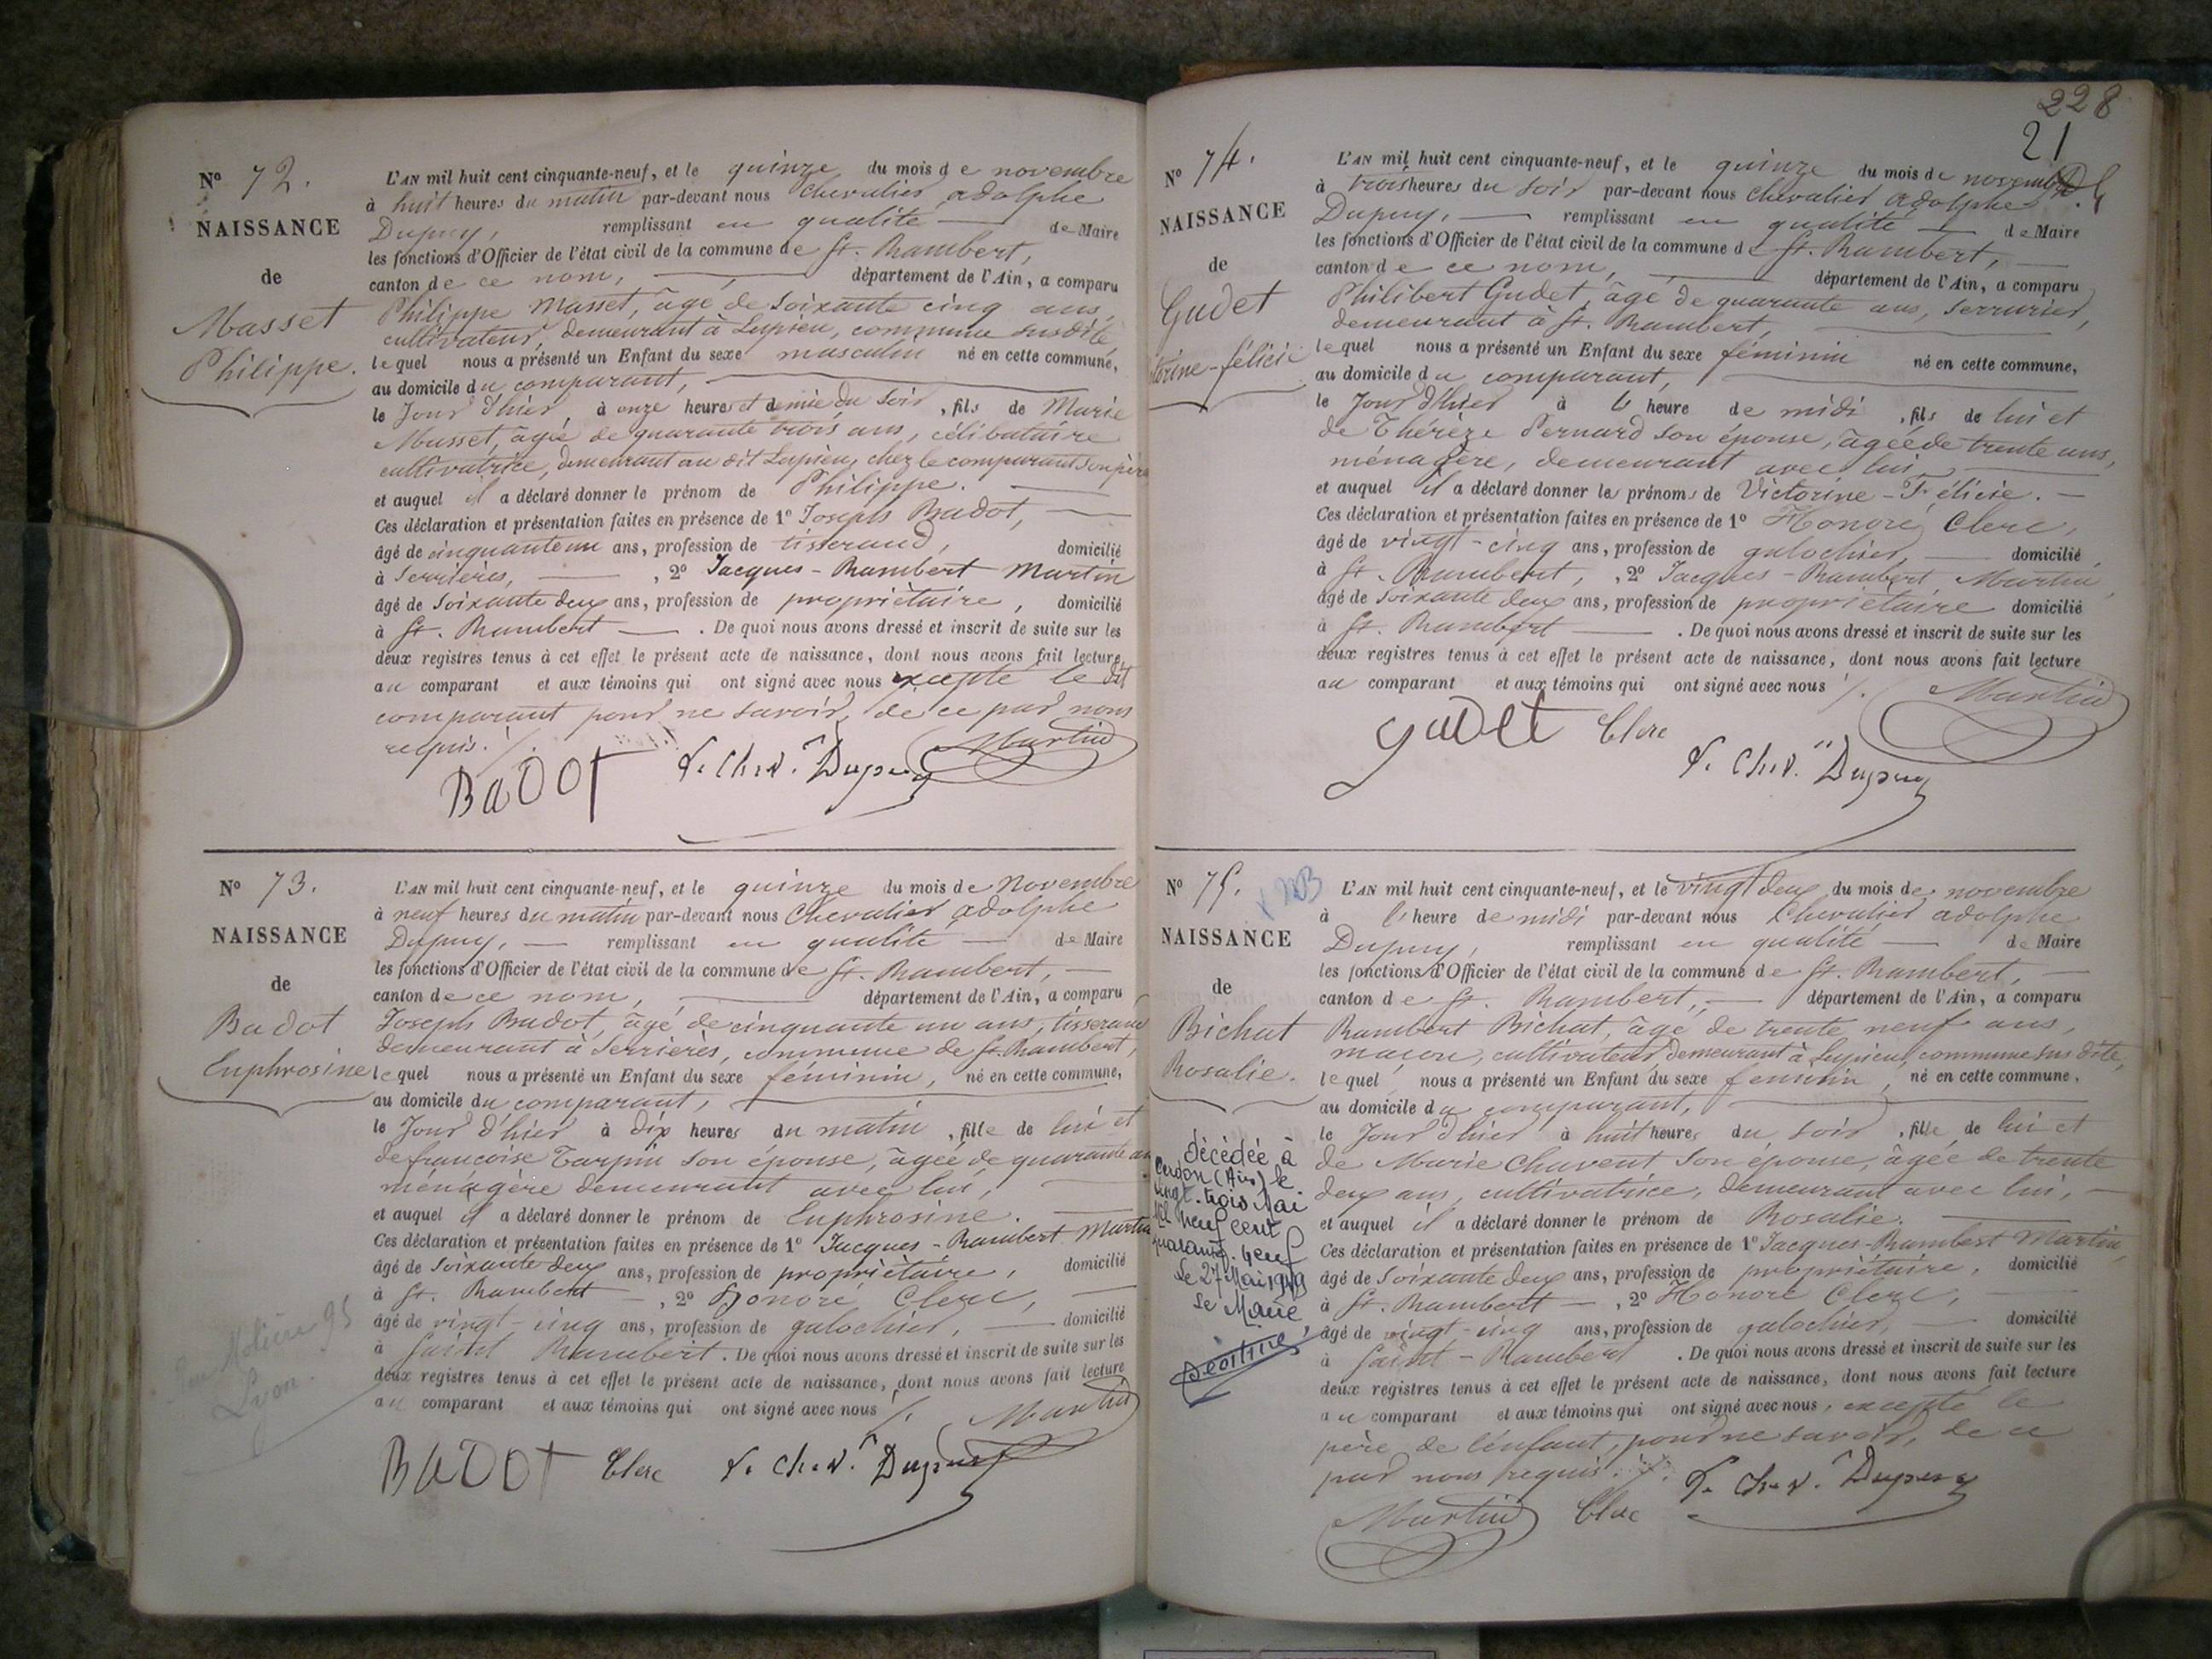 N° 72.
NAISSANCE
de
Masset
Philippe.
L'AN mil huit cent cinquante-neuf, et le quinze du mois de novembre
à huit heures du matin par-devant nous Chevalier adolphe
Dupuy, remplissant en qualité de Maire
les fonctions d'Officier de l'état civil de la commune de St. Rambert,
canton de ce nom, département de l'Ain, a comparu
Philippe Masset, âgé de soixante cinq ans,
cultivateur, demeurant à Lupieu, commune susdite
lequel nous a présenté un Enfant du sexe masculin né en cette commune,
au domicile du comparant,
le Jour d'hier à onze heures et demie du soir, fils de Marie
Masset, âgée de quarante trois ans, célibataire
cultivatrice, demeurant au dit Lupieu, chez le comparant son père
et auquel il a déclaré donner le prénom de Philippe.
Ces déclaration et présentation faites en présence de 1° Joseph Badot,
âgé de cinquante un ans, profession de tisserand, domicilié
à Serrières, , 2° Jacques-Rambert Martin
âgé de soixante deux ans, profession de propriétaire, domicilié
à St. Rambert . De quoi nous avons dressé et inscrit de suite sur les
deux registres tenus à cet effet le présent acte de naissance, dont nous avons fait lecture
au comparant et aux témoins qui ont signé avec nous excepté le dit
comparant pour ne savoir, de ce par nous
requis. /.
BaDOt L. Chev. Dupuy Martin
N° 73.
NAISSANCE
de
Badot
Euphrosine
L'AN mil huit cent cinquante-neuf, et le quinze du mois de Novembre
à neuf heures du matin par-devant nous Chevalier adolphe
Dupuy, remplissant en qualité de Maire
les fonctions d'Officier de l'état civil de la commune de St. Rambert,
canton de ce nom, département de l'Ain, a comparu
Joseph Badot, âgé de cinquante un ans, tisserand
demeurant à Serrières, commune de St. Rambert,
lequel nous a présenté un Enfant du sexe féminin, né en cette commune,
au domicile du comparant,
le Jour d'hier à dix heures du matin, fille de lui et
de françoise Tarpin son épouse, âgée de quarante an
ménagère demeurant avec lui,
et auquel il a déclaré donner le prénom de Euphrosine.
Ces déclaration et présentation faites en présence de 1° Jacques-Rambert Martin
âgé de soixante deux ans, profession de propriétaire, domicilié
à St. Rambert , 2° Honoré Clerc,
âgé de vingt-cinq ans, profession de galochier, domicilié
à Saint Rambert. De quoi nous avons dressé et inscrit de suite sur les
deux registres tenus à cet effet le présent acte de naissance, dont nous avons fait lecture
au comparant et aux témoins qui ont signé avec nous /. Martin
Molière 95
Lyon.
BaDOt Clerc L. Chev. Dupuy
228
21
N° 74.
NAISSANCE
de
Gudet
torine-félicie
L'AN mil huit cent cinquante-neuf, et le quinze du mois de novembre
à trois heures du soir par-devant nous Chevalier adolphe
Dupuy, remplissant en qualité de Maire
les fonctions d'Officier de l'état civil de la commune de St. Rambert,
canton de ce nom, département de l'Ain, a comparu
Philibert Gudet, âgé de quarante ans, serrurier,
demeurant à St. Rambert,
lequel nous a présenté un Enfant du sexe féminin né en cette commune,
au domicile du comparant,
le Jour d'hier à l' heure de midi, fils de lui et
de Thérèze Pernard son épouse, âgée de trente ans,
ménagère, demeurant avec lui,
et auquel il a déclaré donner les prénoms de Victorine-Félicie.
Ces déclaration et présentation faites en présence de 1° Honoré Clerc,
âgé de vingt-cinq ans, profession de galochier, domicilié
à St. Rambert, , 2° Jacques-Rambert Martin,
âgé de soixante deux ans, profession de propriétaire domicilié
à St. Rambert . De quoi nous avons dressé et inscrit de suite sur les
deux registres tenus à cet effet le présent acte de naissance, dont nous avons fait lecture
au comparant et aux témoins qui ont signé avec nous /. Martin
gudet Clerc
L. Chev. Dupuy
N° 75.
NAISSANCE
de
Bichat
Rosalie.
L'AN mil huit cent cinquante-neuf, et le vingt deux du mois de novembre
à l'heure de midi par-devant nous Chevalier adolphe
Dupuy, remplissant en qualité de Maire
les fonctions d'Officier de l'état civil de la commune de St. Rambert,
canton de St. Rambert, département de l'Ain, a comparu
Rambert Bichat, âgé de trente neuf ans,
maçon, cultivateur, demeurant à Lupieu, commune sus dite,
lequel nous a présenté un Enfant du sexe feminin, né en cette commune,
au domicile du comparant,
le Jour d'hier à huit heures du soir, fille de lui et
de Marie Chavent, son épouse, âgée de trente
deux ans, cultivatrice, demeurant avec lui,
et auquel il a déclaré donner le prénom de Rosalie.
Ces déclaration et présentation faites en présence de 1° Jacques-Rambert Martin,
âgé de soixante deux ans, profession de propriétaire, domicilié
à St. Rambert , 2° Honoré Clerc,
âgé de vingt-cinq ans, profession de galochier, domicilié
à Saint-Rambert . De quoi nous avons dressé et inscrit de suite sur les
deux registres tenus à cet effet le présent acte de naissance, dont nous avons fait lecture
au comparant et aux témoins qui ont signé avec nous, excepté le
père de l'enfant, pour ne savoir, de ce
par nous requis. /. L. Chev. Dupuy
Martin Clerc
Décédée à
Cerdon (Ain) le
vingt-trois Mai
Mil neuf cent
quarante-neuf
Le 27 Mai 1949
Le Maire,